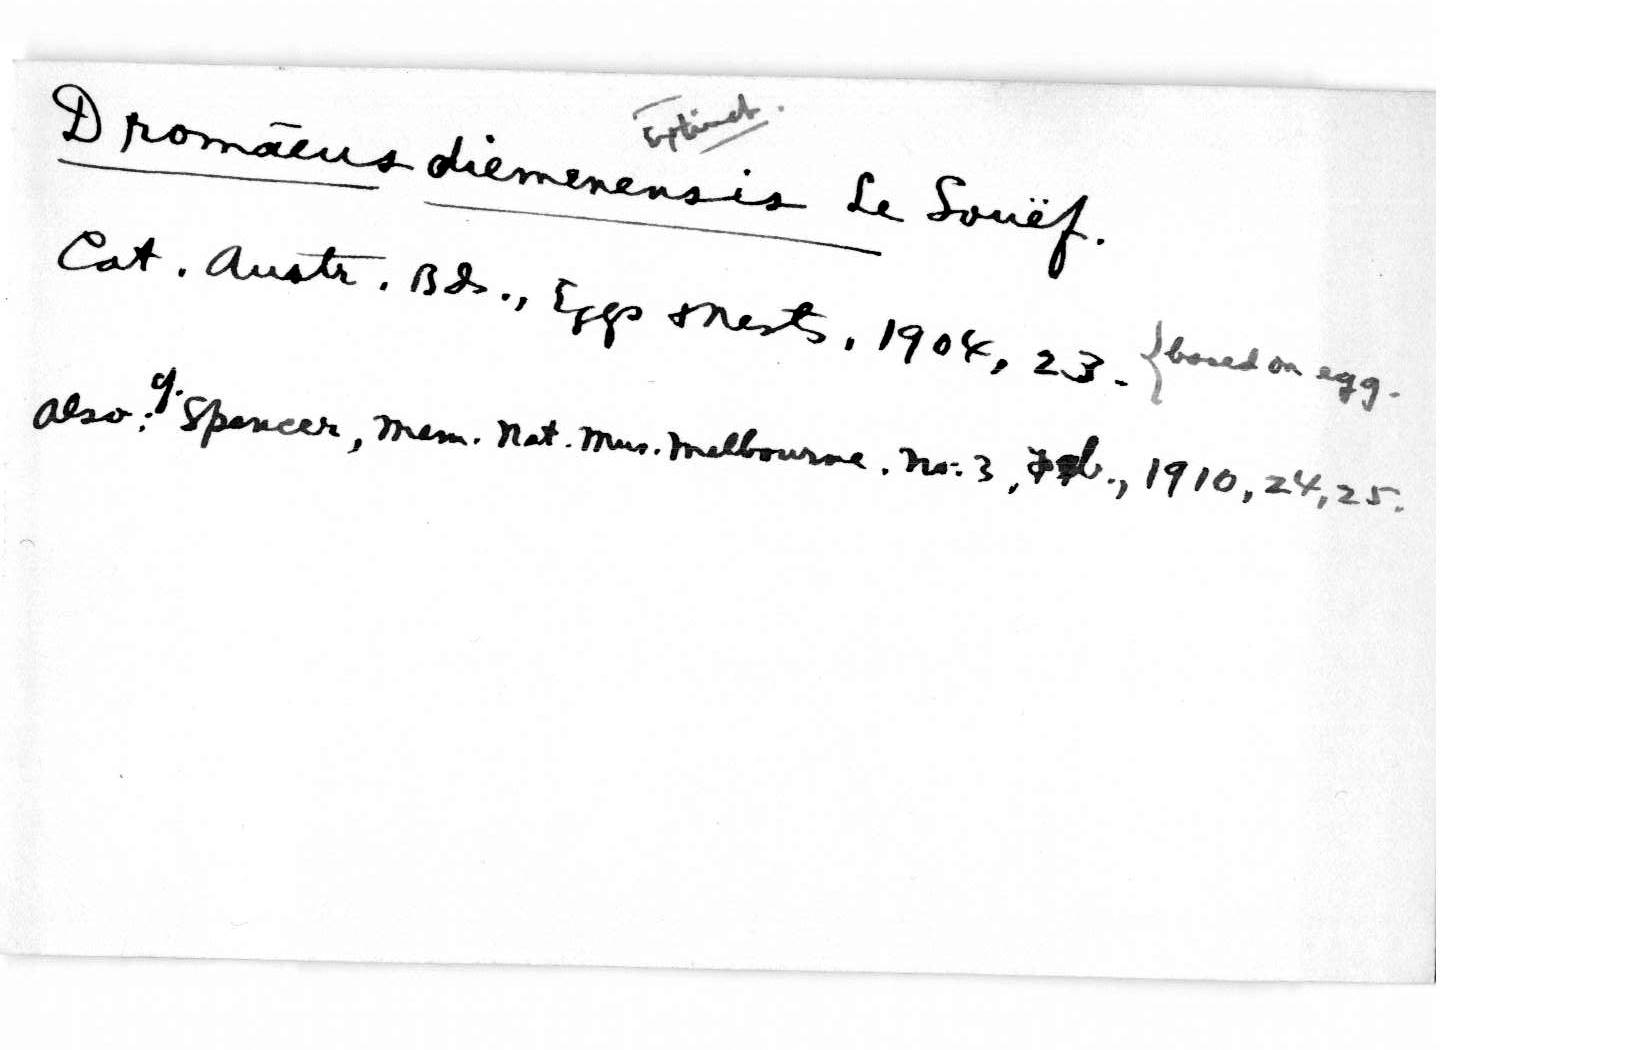 Extinct.
Dromāeus diemenensis Le Souëf.
Cat. Austr. Bds., Eggs & Nests, 1904, 23. {based on egg.
Also: cf. Spencer, Mem. Nat. Mus. Melbourne. No. 3, Feb., 1910, 24, 25.